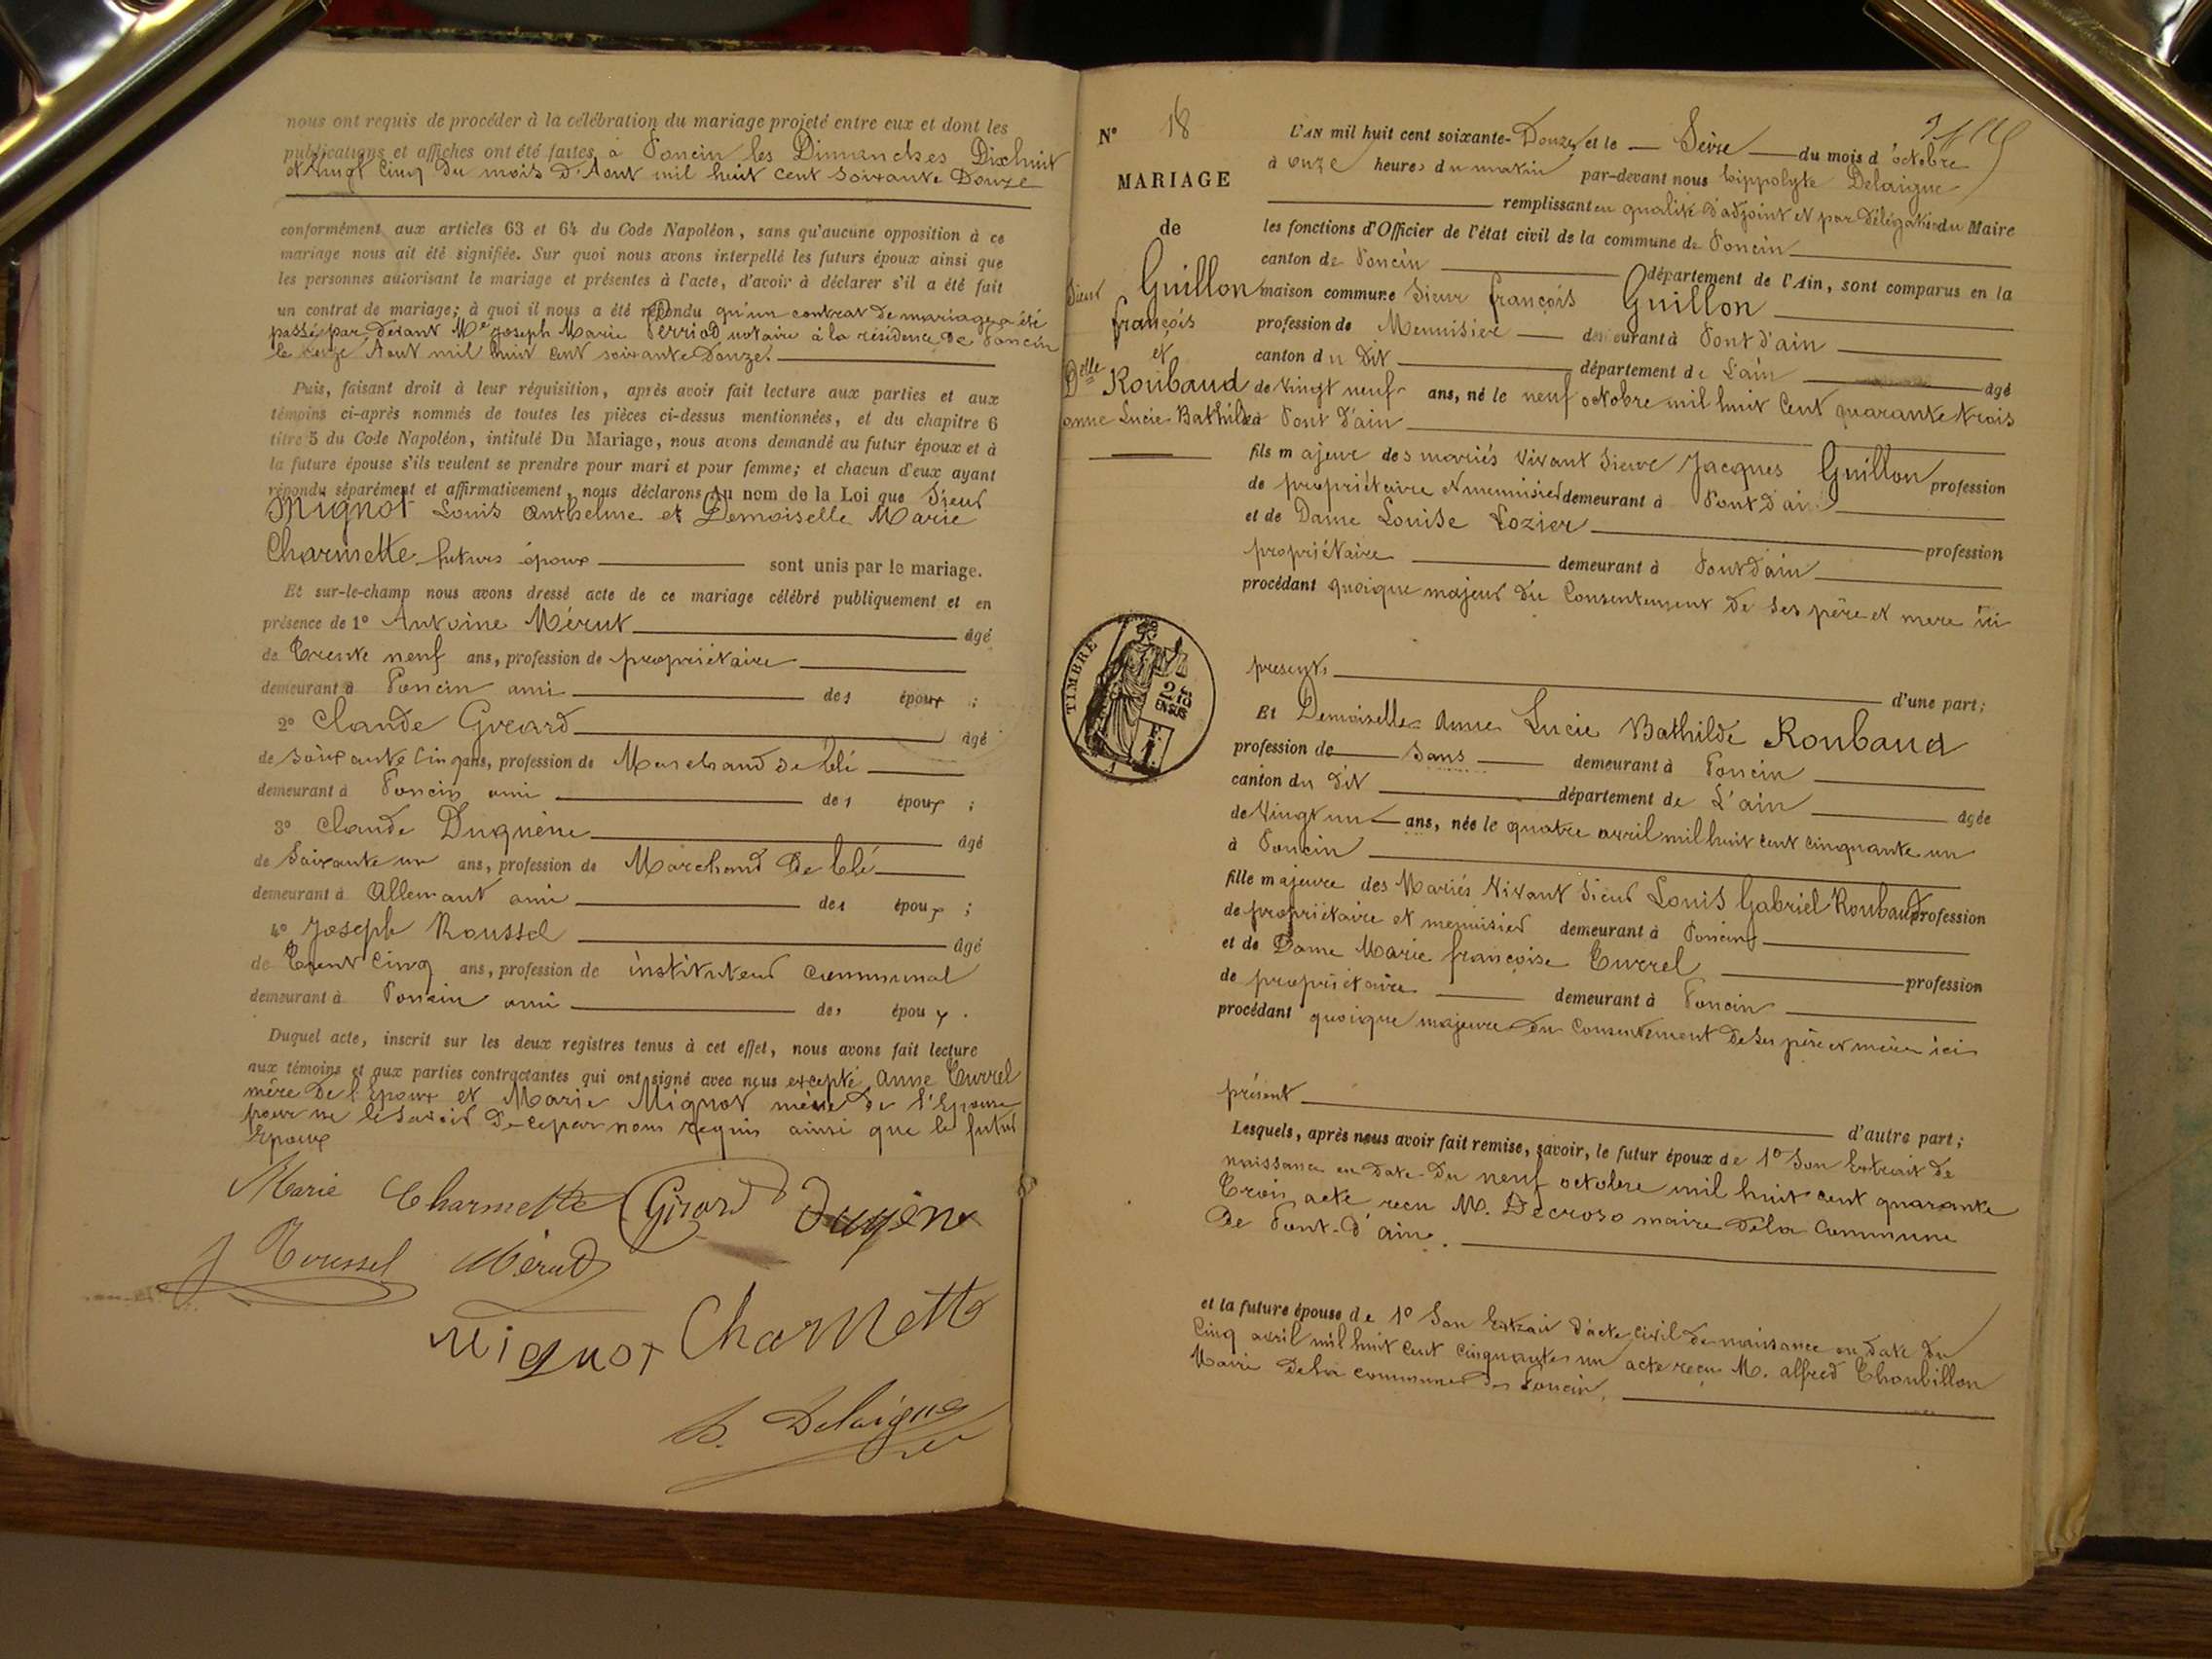 nous ont requis de procéder à la célébration du mariage projeté entre eux et dont les
publications et affiches ont été faites, à Poncin les Dimanches Dixhuit
et Vingt Cinq du mois d'Aout mil huit cent soixante Douze
conformément aux articles 63 et 64 du Code Napoléon, sans qu'aucune opposition à ce
mariage nous ait été signifiée. Sur quoi nous avons interpellé les futurs époux ainsi que
les personnes autorisant le mariage et présentes à l'acte, d'avoir à déclarer s'il a été fait
un contrat de mariage; à quoi il nous a été répondu qu'un contrat de mariage a été
passé par devant Me Joseph Marie Perriod notaire à la résidence de Poncin
le Aout mil huit cent soixante douze.
Puis, faisant droit à leur réquisition, après avoir fait lecture aux parties et aux
témoins ci-après nommés de toutes les pièces ci-dessus mentionnées, et du chapitre 6
titre 5 du Code Napoléon, intitulé Du Mariage, nous avons demandé au futur époux et à
la future épouse s'ils veulent se prendre pour mari et pour femme; et chacun d'eux ayant
répondu séparément et affirmativement, nous déclarons Au nom de la Loi que Sieur
Mignot Louis Anthelme et Demoiselle Marie
Charmette futurs époux sont unis par le mariage.
Et sur-le-champ nous avons dressé acte de ce mariage célébré publiquement et en
présence de 1° Antoine Mérut âgé
de Trente neuf ans, profession de propriétaire
demeurant à Poncin ami des époux ;
2° Claude Girard âgé
de soixante Cinq ans, profession de Marchand de blé
demeurant à Poncin ami des époux ;
3° Claude Duquène âgé
de Soixante un ans, profession de Marchand De blé
demeurant à Allemant ami des époux ;
4° Joseph Roussel âgé
de Trent Cinq ans, profession de instituteur communal
demeurant à Poncin ami des époux .
Duquel acte, inscrit sur les deux registres tenus à cet effet, nous avons fait lecture
aux témoins et aux parties contractantes qui ont signé avec nous excepté Anne Turrel
mère De l'Epoux et Marie Mignot mère de l'Epouse
pour ne le savoir De ce par nous requis ainsi que le futur
Epoux
Marie Charmette Girard Duquène
J Roussel Mérut
Mignot Charmette
h. Delaigue
N° 18
MARIAGE
de
Sieur Guillon
françois
et
Delle Roubaud
anne Lucie Bathilde
L'AN mil huit cent soixante-Douze et le Seize du mois d'octobre
à onze heures du matin par-devant nous hippolyte Delaigue
remplissant en qualité d'adjoint et par délégation du Maire
les fonctions d'Officier de l'état civil de la commune de Poncin
canton de Poncin département de l'Ain, sont comparus en la
maison commune Sieur françois Guillon
profession de Menuisier demeurant à Pont d'ain
canton du dit département de L'ain âgé
de Vingt neuf ans, né le neuf octobre mil huit Cent quarante trois
à Pont d'ain
fils majeur des mariés Vivant Sieur Jacques Guillon profession
de propriétaire et menuisier demeurant à Pont d'ain
et de Dame Louise Lozier profession
propriétaire demeurant à Pont d'ain
procédant quoique majeur du Consentement de ses père et mere ici
presents d'une part;
Et Demoiselle anne Lucie Bathilde Roubaud
profession de sans demeurant à Poncin
canton du dit département de L'ain âgée
de Vingt un ans, née le quatre avril mil huit cent cinquante un
à Poncin
fille majeure des Mariés Vivant Sieur Louis Gabriel Roubaud profession
de propriétaire et menuisier demeurant à Poncin
et de Dame Marie françoise Turrel profession
de propriétaire demeurant à Poncin
procédant quoique majeure du Consentement De ses père et mère ici
présent d'autre part;
Lesquels, après nous avoir fait remise, savoir, le futur époux de 1° Son Extrait de
naissance en date du neuf octobre mil huit cent quarante
Trois acte reçu M. Decroso maire dela Commune
De Pont-d'ain.
et la future épouse de 1° Son Extrait d'acte civil de naissance en date du
Cinq avril mil huit cent cinquante un acte reçu M. alfred Thoubillon
Maire Dela commune de Poncin.
TIMBRE
2/10 EN SUS